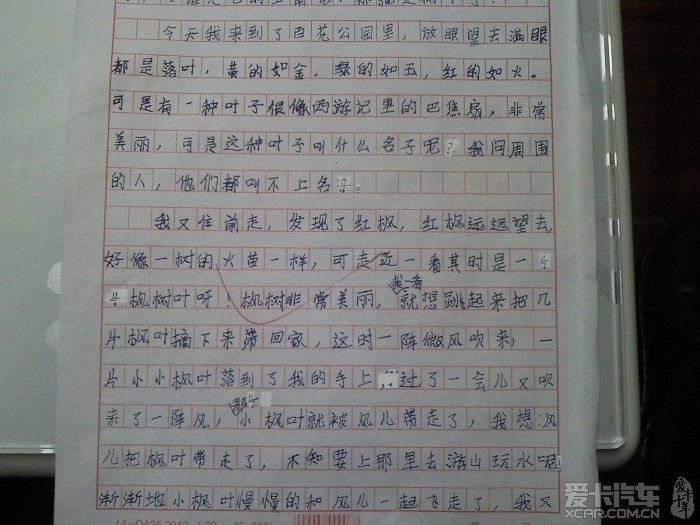 今天我来到了百花公园里，放眼望去满眼
都是落叶，黄的如金，绿的如玉，红的如火。
可是有一种叶子很像西游记里的巴焦扇，非常
美丽，可是这种叶子叫什么名子呢？我问周围
的人，他们都叫不上名来。
我又住前走，发现了红枫，红枫远远望去
好像一树的火苗一样，可走近一看其时是一片
片枫树叶呀！枫树非常美丽，我一看就想跳起来把几
片枫叶摘下来带回家，这时一阵微风吹来，一
片小小枫叶落到了我的手上，过了一会儿又吹
来了一阵风，那个小枫叶就被风儿带走了，我想：风
儿把枫叶带走了，不知要上那里去游山玩水呢！
渐渐地小枫叶慢慢的和风儿一起飞走了，我又
爱卡汽车
XCAR.COM.CN